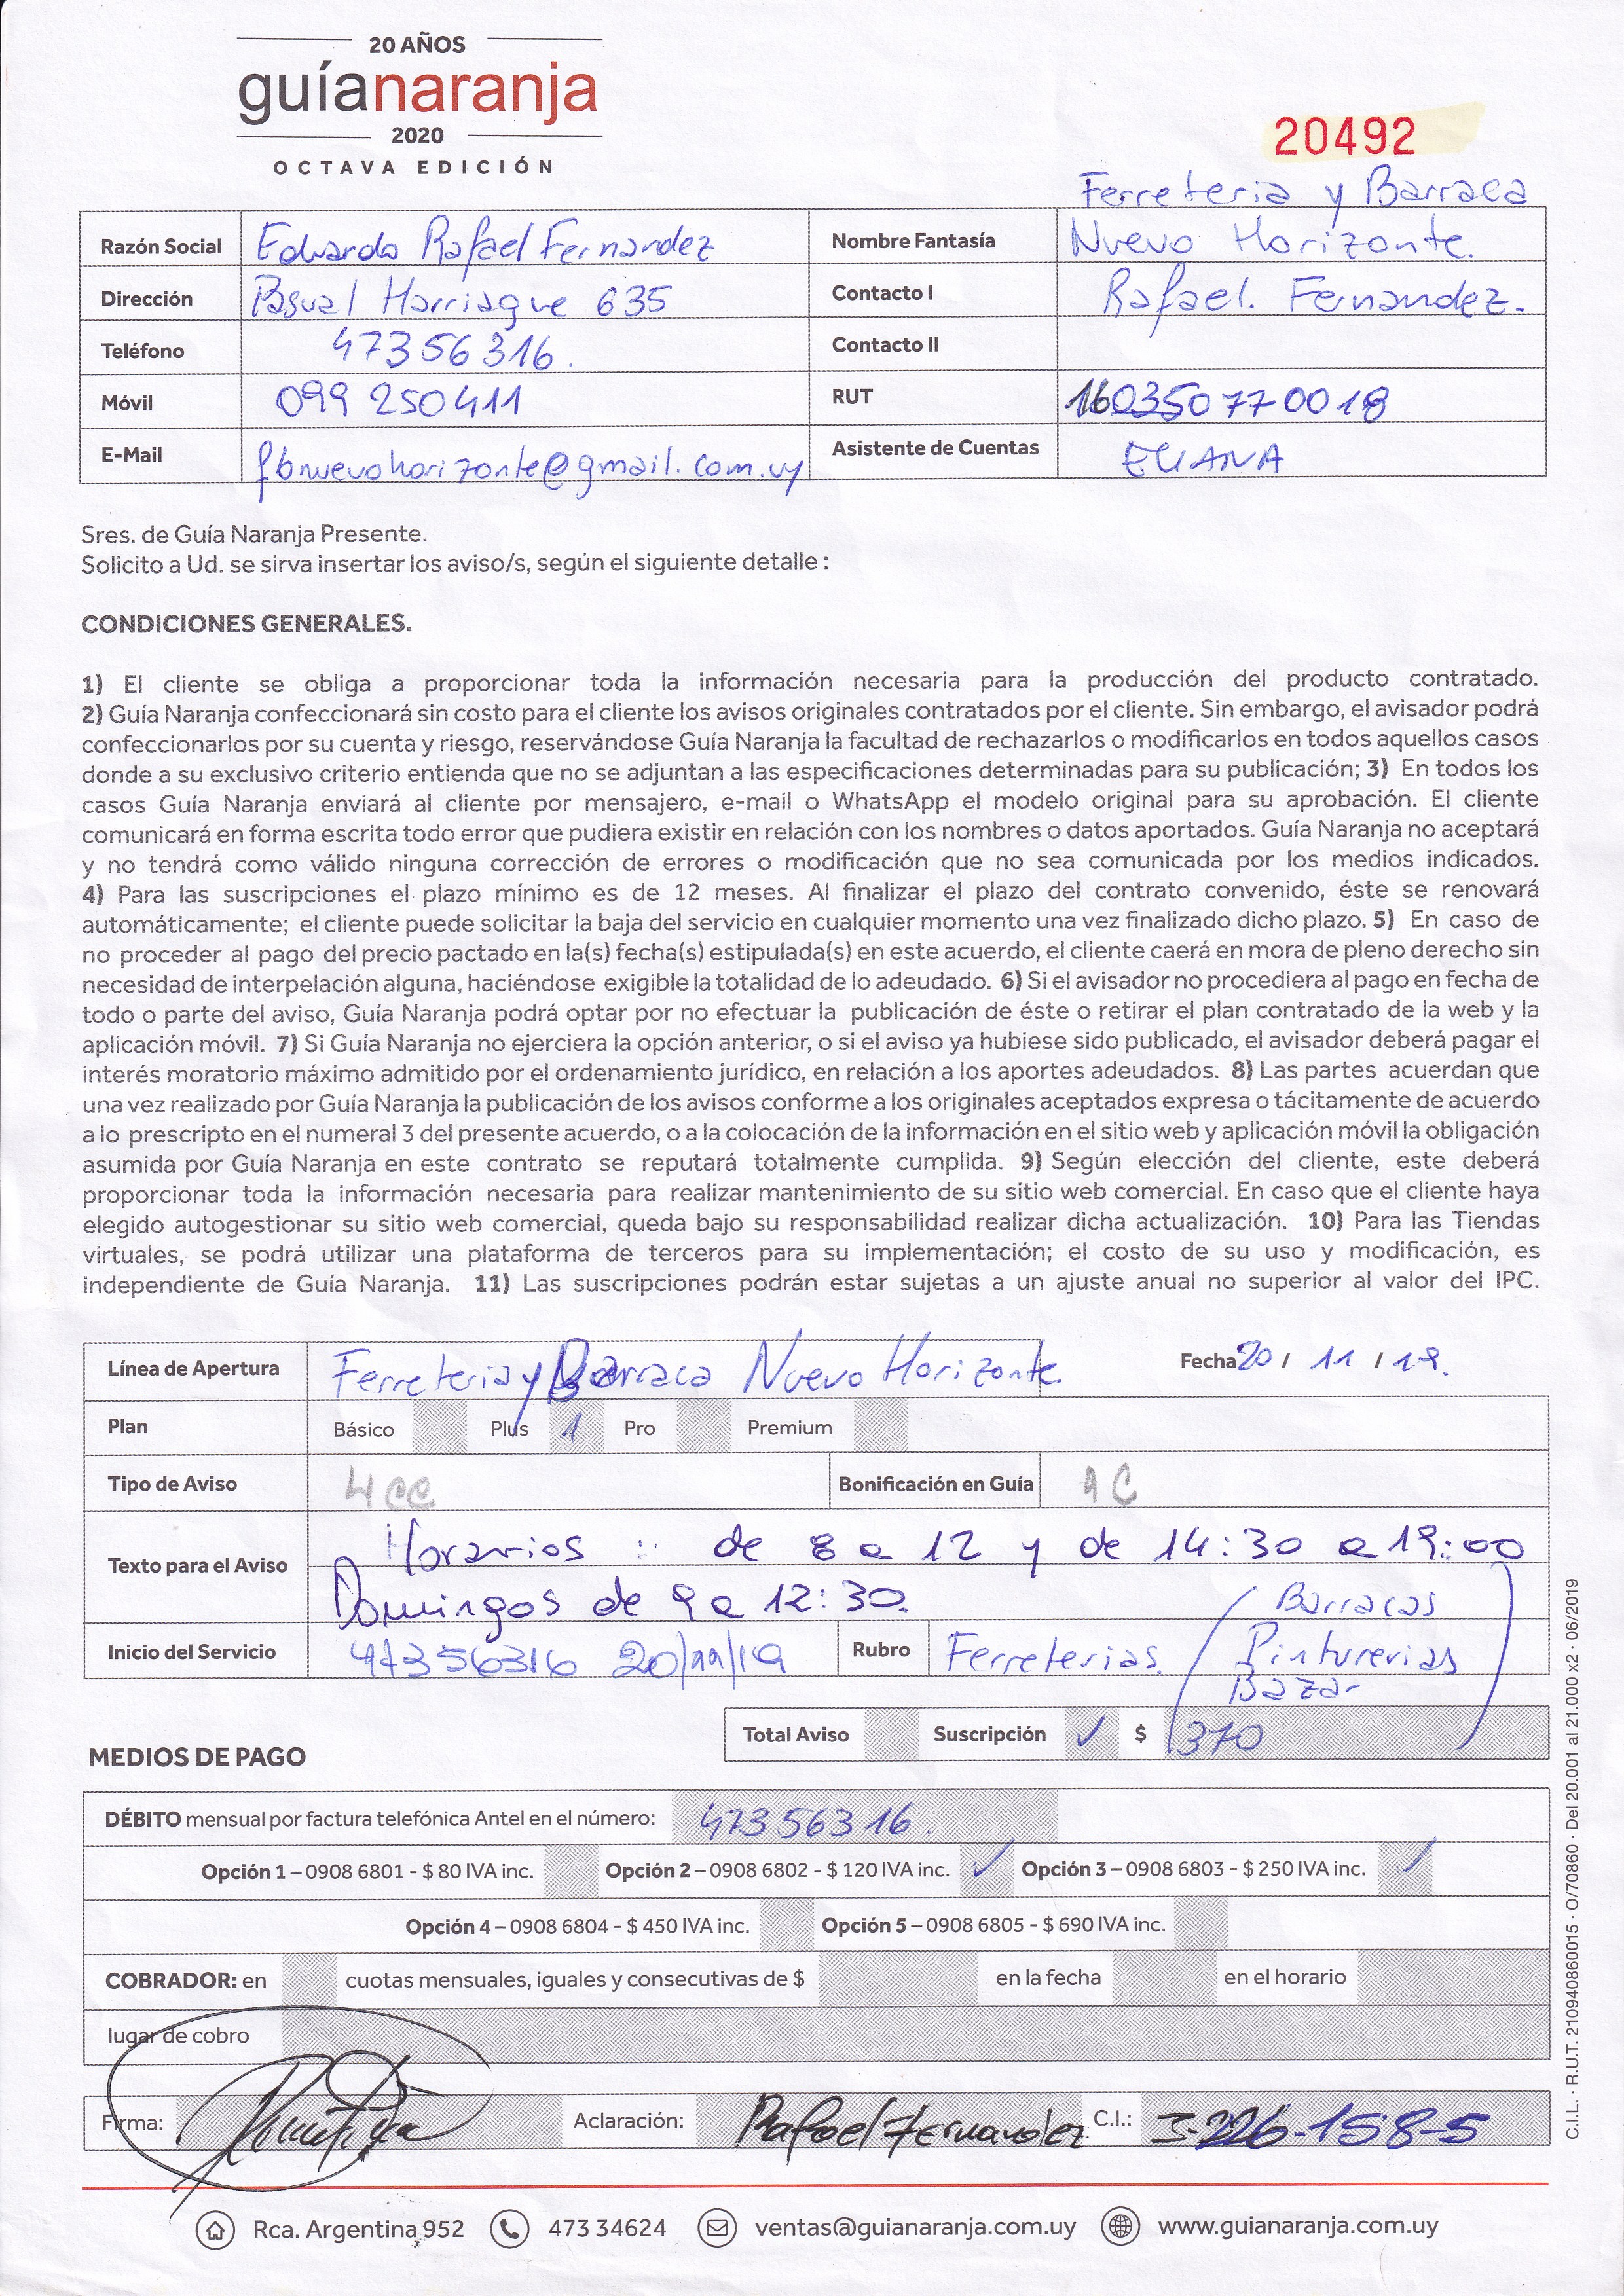 20 AÑOS
guíanaranja
2020
OCTAVA EDICIÓN
20492
Ferreteria y Barraca
Razón Social Eduardo Rafael Fernandez Nombre Fantasía Nuevo Horizonte.
Dirección Pasual Harriague 635 Contacto I Rafael. Fernandez.
Teléfono 47356316. Contacto II
Móvil 099 250411 RUT 160350770018
E-Mail fbnuevohorizonte@gmail.com.uy Asistente de Cuentas ELIANA
Sres. de Guía Naranja Presente.
Solicito a Ud. se sirva insertar los aviso/s, según el siguiente detalle :
CONDICIONES GENERALES.
1) El cliente se obliga a proporcionar toda la información necesaria para la producción del producto contratado.
2) Guía Naranja confeccionará sin costo para el cliente los avisos originales contratados por el cliente. Sin embargo, el avisador podrá
confeccionarlos por su cuenta y riesgo, reservándose Guía Naranja la facultad de rechazarlos o modificarlos en todos aquellos casos
donde a su exclusivo criterio entienda que no se adjuntan a las especificaciones determinadas para su publicación; 3) En todos los
casos Guía Naranja enviará al cliente por mensajero, e-mail o WhatsApp el modelo original para su aprobación. El cliente
comunicará en forma escrita todo error que pudiera existir en relación con los nombres o datos aportados. Guía Naranja no aceptará
y no tendrá como válido ninguna corrección de errores o modificación que no sea comunicada por los medios indicados.
4) Para las suscripciones el plazo mínimo es de 12 meses. Al finalizar el plazo del contrato convenido, éste se renovará
automáticamente; el cliente puede solicitar la baja del servicio en cualquier momento una vez finalizado dicho plazo. 5) En caso de
no proceder al pago del precio pactado en la(s) fecha(s) estipulada(s) en este acuerdo, el cliente caerá en mora de pleno derecho sin
necesidad de interpelación alguna, haciéndose exigible la totalidad de lo adeudado. 6) Si el avisador no procediera al pago en fecha de
todo o parte del aviso, Guía Naranja podrá optar por no efectuar la publicación de éste o retirar el plan contratado de la web y la
aplicación móvil. 7) Si Guía Naranja no ejerciera la opción anterior, o si el aviso ya hubiese sido publicado, el avisador deberá pagar el
interés moratorio máximo admitido por el ordenamiento jurídico, en relación a los aportes adeudados. 8) Las partes acuerdan que
una vez realizado por Guía Naranja la publicación de los avisos conforme a los originales aceptados expresa o tácitamente de acuerdo
a lo prescripto en el numeral 3 del presente acuerdo, o a la colocación de la información en el sitio web y aplicación móvil la obligación
asumida por Guía Naranja en este contrato se reputará totalmente cumplida. 9) Según elección del cliente, este deberá
proporcionar toda la información necesaria para realizar mantenimiento de su sitio web comercial. En caso que el cliente haya
elegido autogestionar su sitio web comercial, queda bajo su responsabilidad realizar dicha actualización. 10) Para las Tiendas
virtuales, se podrá utilizar una plataforma de terceros para su implementación; el costo de su uso y modificación, es
independiente de Guía Naranja. 11) Las suscripciones podrán estar sujetas a un ajuste anual no superior al valor del IPC.
Línea de Apertura Ferreteria y Barraca Nuevo Horizonte. Fecha 20 / 11 / 19.
Plan Básico Plus 1 Pro Premium
Tipo de Aviso 4 CC Bonificación en Guía 1 C
Texto para el Aviso Horarios : de 8 a 12 y de 14:30 a 19:00
Domingos de 9 a 12:30.
Barracas
Inicio del Servicio 47356316 20/11/19 Rubro Ferreterias. Pinturerias
Bazar
Total Aviso Suscripción ✓ $ 370
MEDIOS DE PAGO
DÉBITO mensual por factura telefónica Antel en el número: 47356316.
Opción 1 – 0908 6801 - $ 80 IVA inc. Opción 2 – 0908 6802 - $ 120 IVA inc. ✓ Opción 3 – 0908 6803 - $ 250 IVA inc. ✓
Opción 4 – 0908 6804 - $ 450 IVA inc. Opción 5 – 0908 6805 - $ 690 IVA inc.
COBRADOR: en cuotas mensuales, iguales y consecutivas de $ en la fecha en el horario
lugar de cobro
Firma: Aclaración: Rafael Fernandez C.I.: 3-226-158-5
Rca. Argentina 952 473 34624 ventas@guianaranja.com.uy www.guianaranja.com.uy
C.I.L. · R.U.T. 210940860015 · O/70860 · Del 20.001 al 21.000 x2 · 06/2019